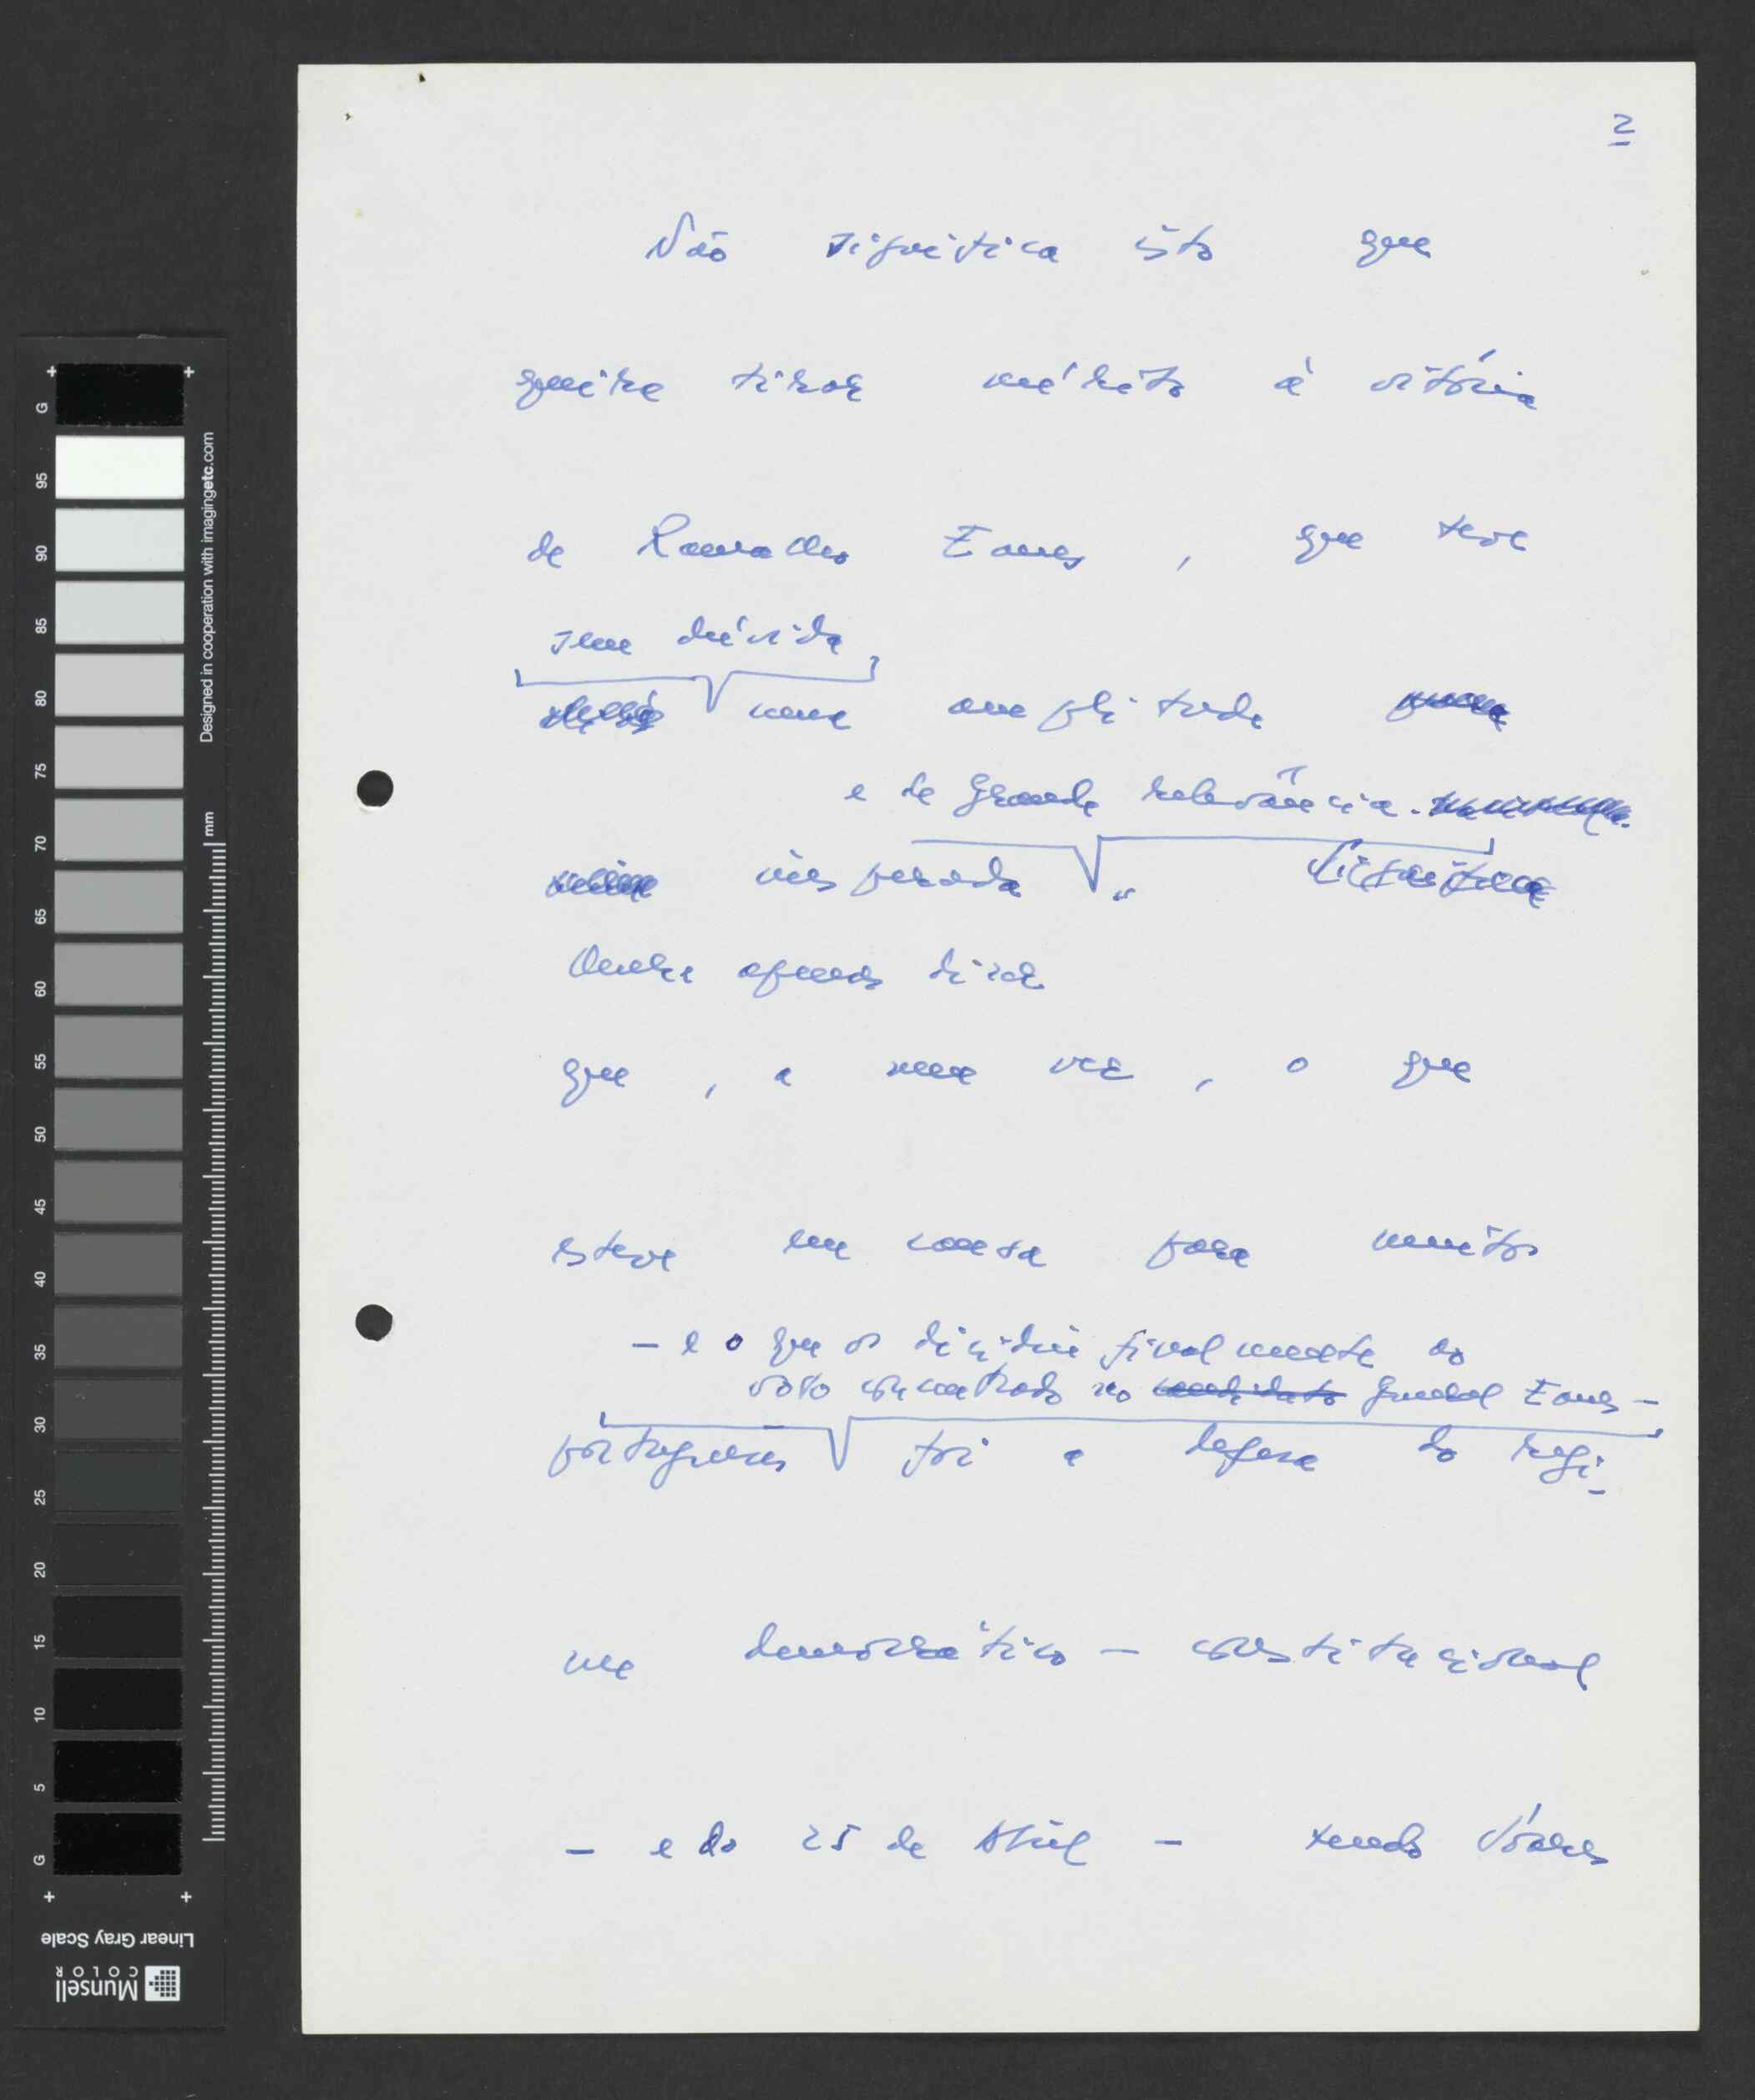 2
Não significa isto que
queira tirar mérito à vitória
de Ramalho Eanes, que teve
sem dúvida,
uma amplitude
e de grande relevância.
inesperada. Significa
Quere apenas dizer
que, a meu ver, o que
esteve em causa para muitos
- e o que os decidiu finalmente ao
voto concentrado no candidato General Eanes -
portugueses foi a defesa do regi-
me democrático-constitucional
- e do 25 de Abril - tendo Soares
G
95
90
85
80
75
70
65
60
55
50
45
40
35
30
25
20
15
10
5
G
Designed in cooperation with imagingetc.com
mm
Linear Gray Scale
Munsell
COLOR